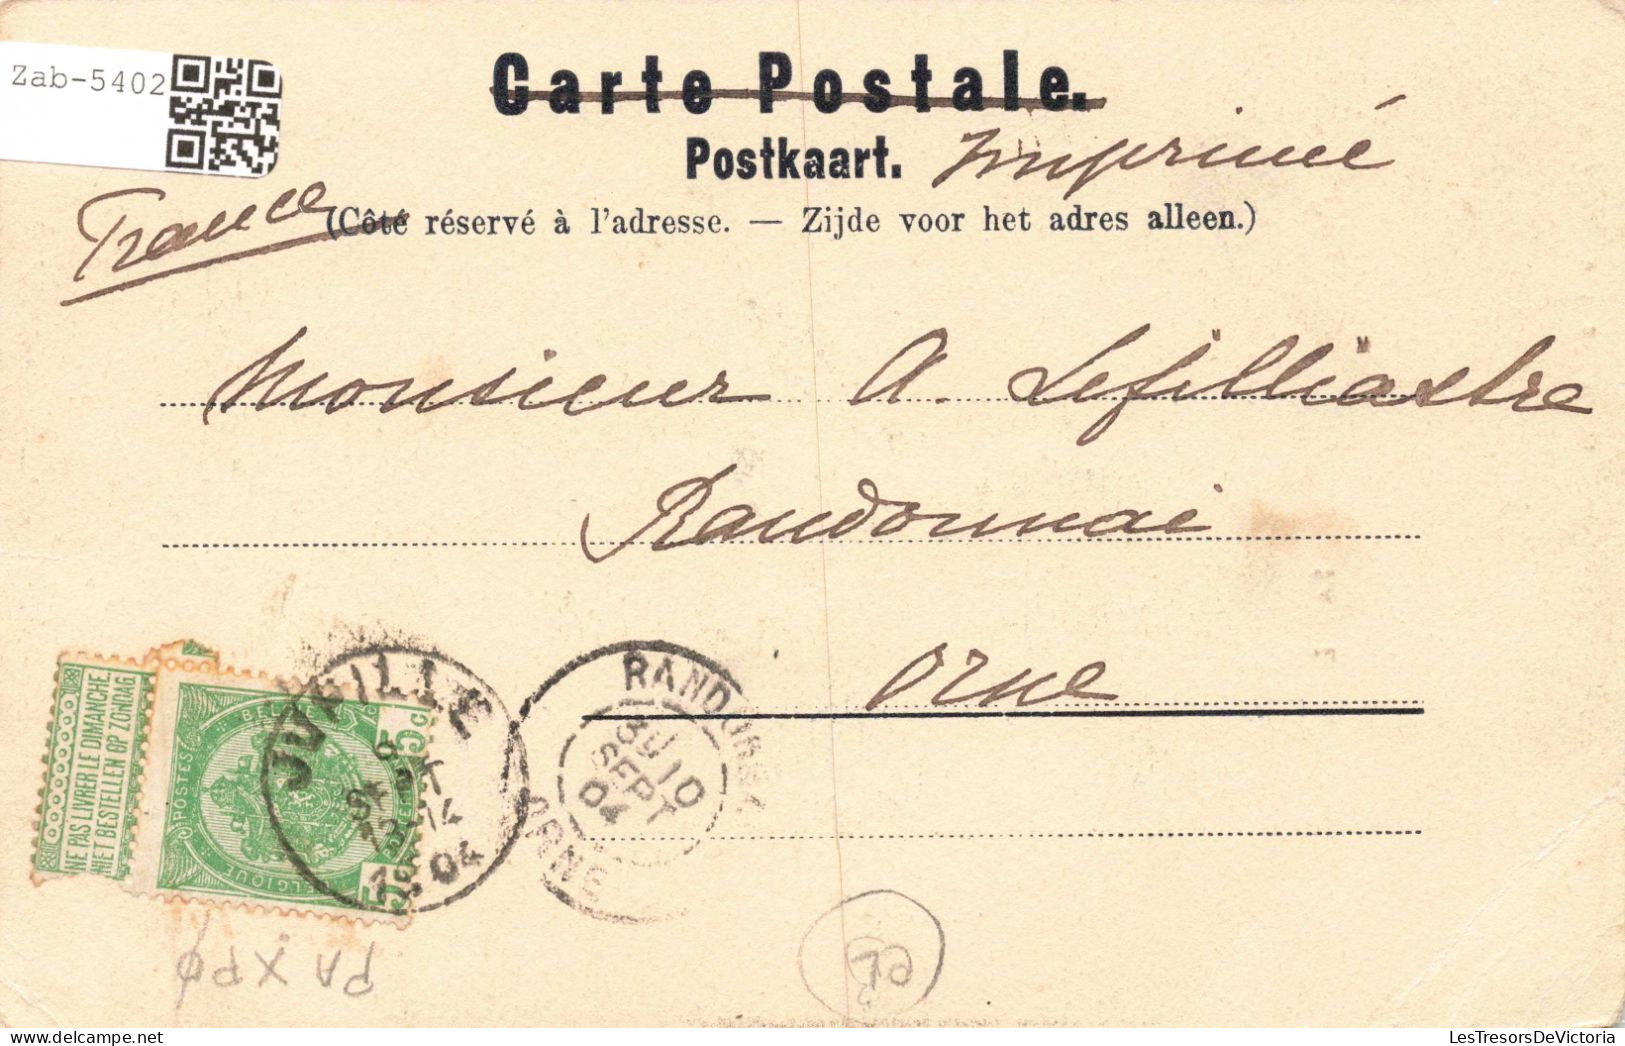 Zab-5402
Carte Postale.
Postkaart. Imprimé
France
(Côté réservé à l'adresse. — Zijde voor het adres alleen.)
Monsieur A. Lefilliastre
Randonnai
Orne
NE PAS LIVRER LE DIMANCHE
NIET BESTELLEN OP ZONDAG
POSTES
BELGIQUE
5c
JUPILLE
SEPT
04
RANDONNAI
10
SEPT
04
ORNE
PAXPO
LesTresorsDeVictoria